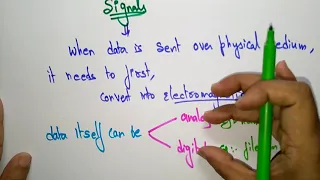 Signals
When data is sent over physical medium,
it needs to first,
convert into electromag
data itself can be
analog
digital eg:- file